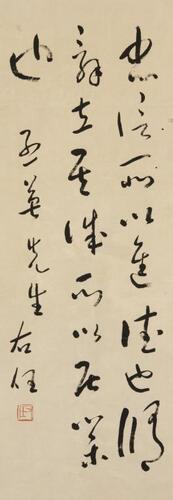 忠信所以進德也脩
辭立其誠所以居業
也
英先生 右任